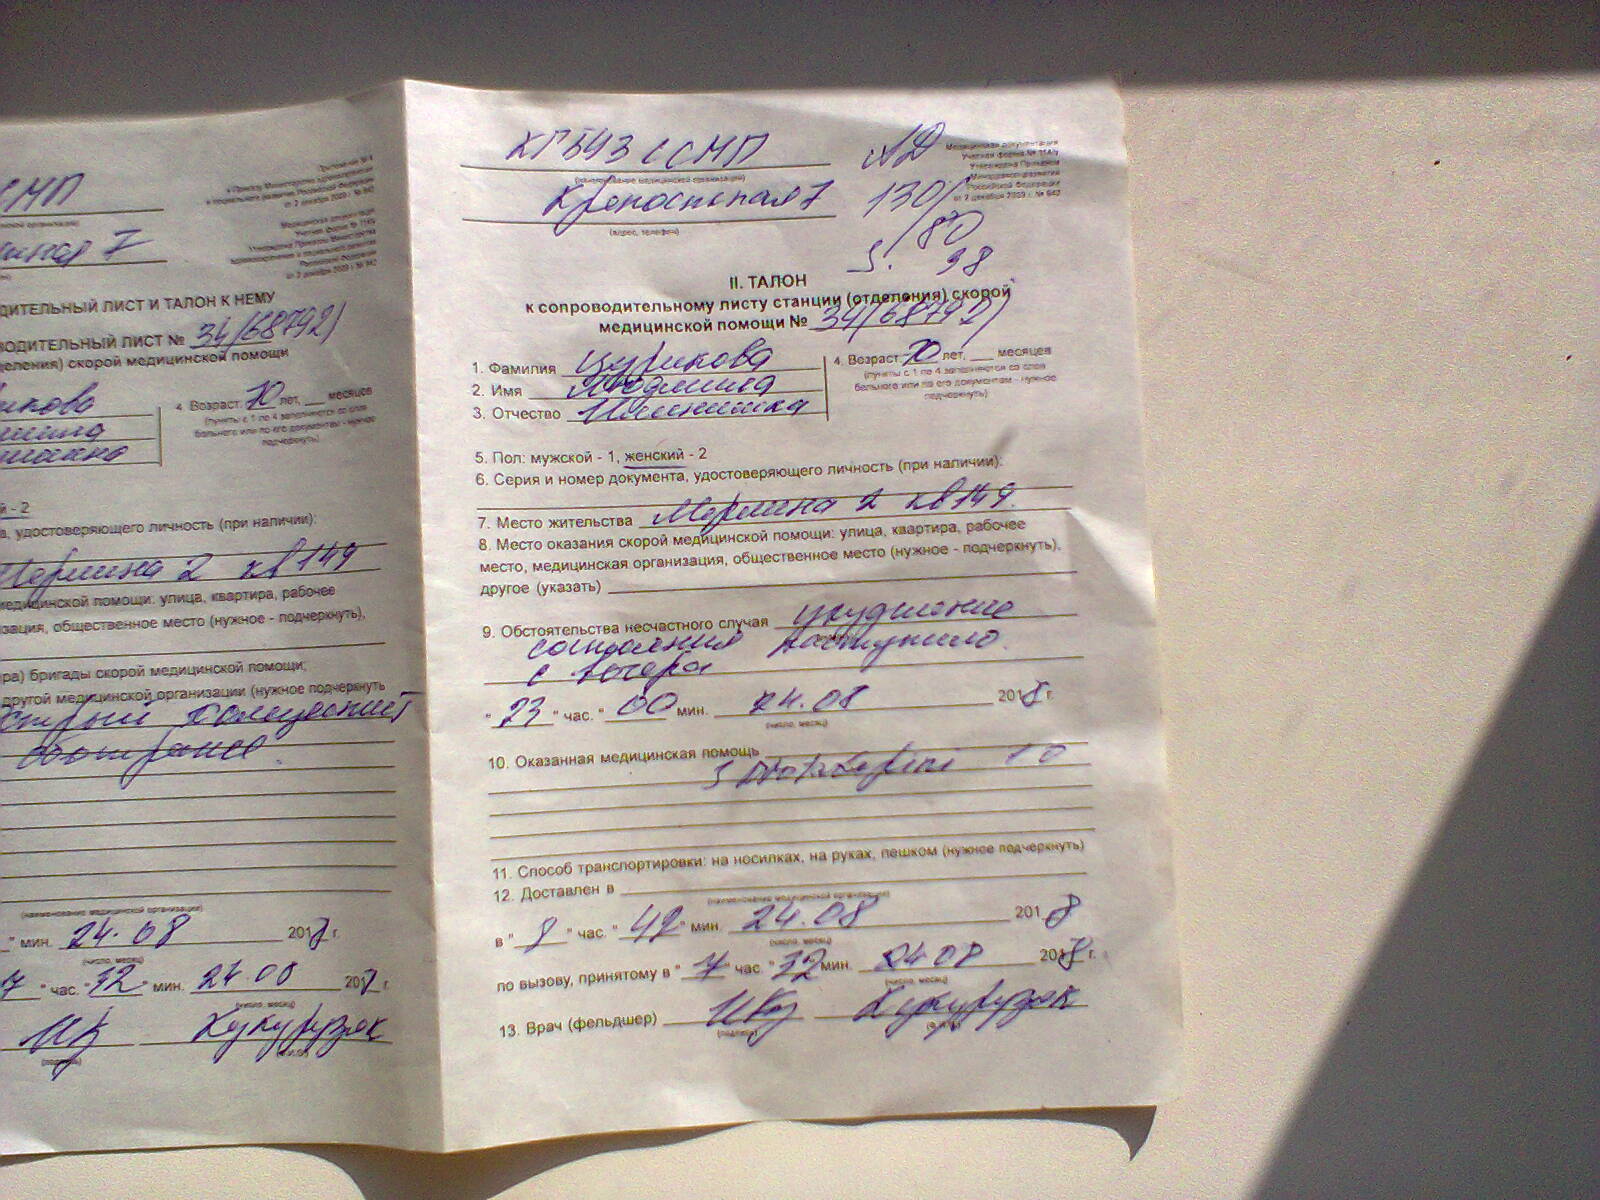 СМП
ная 7
Приложение № 4
к Приказу Министерства здравоохранения
и социального развития Российской Федерации
от 2 декабря 2009 г. № 942
Медицинская документация
Учетная форма № 114/у
Утверждена Приказом Министерства
здравоохранения и социального развития
Российской Федерации
от 2 декабря 2009 г. № 942
ДИТЕЛЬНЫЙ ЛИСТ И ТАЛОН К НЕМУ
ВОДИТЕЛЬНЫЙ ЛИСТ № 34(68792)
деления) скорой медицинской помощи
икова
4. Возраст: 70 лет, ___ месяцев
(пункты с 1 по 4 заполняются со слов
больного или по его документам - нужное
подчеркнуть)
й - 2
а, удостоверяющего личность (при наличии):
2 кв 149
медицинской помощи: улица, квартира, рабочее
изация, общественное место (нужное - подчеркнуть),
ра) бригады скорой медицинской помощи;
другой медицинской организации (нужное подчеркнуть
острый холецистит
обострение.
(наименование медицинской организации)
" мин. 24.08 2018 г.
(число, месяц)
7 " час. "32" мин. 24.08 201 г.
(число, месяц)
Кукурузяк
(подпись)
КГБУЗ ССМП
(наименование медицинской организации)
Крепостная 7
(адрес, телефон)
АД
130/
80
S. 98
Медицинская документация
Учетная форма № 114/у
Утверждена Приказом
Минздравсоцразвития
Российской Федерации
от 2 декабря 2009 г. № 942
II. ТАЛОН
к сопроводительному листу станции (отделения) скорой
медицинской помощи № 34(68792)
1. Фамилия Цурикова
2. Имя Людмила
3. Отчество
4. Возраст: 70 лет, ___ месяцев
(пункты с 1 по 4 заполняются со слов
больного или по его документам - нужное
подчеркнуть)
5. Пол: мужской - 1, женский - 2
6. Серия и номер документа, удостоверяющего личность (при наличии):
7. Место жительства 2 кв 149.
8. Место оказания скорой медицинской помощи: улица, квартира, рабочее
место, медицинская организация, общественное место (нужное - подчеркнуть),
другое (указать)
9. Обстоятельства несчастного случая ухудшение
состояния наступило.
с вечера
" 23 " час. " 00 мин. 24.08 2018 г.
(число, месяц)
10. Оказанная медицинская помощь
S 10
11. Способ транспортировки: на носилках, на руках, пешком (нужное подчеркнуть)
12. Доставлен в
(наименование медицинской организации)
в " 8 " час. " 42 " мин. 24.08 2018
(число, месяц)
по вызову, принятому в " 7 " час. " 32 мин. 24 08 2018 г.
(число, месяц)
13. Врач (фельдшер) Кукурузяк
(подпись) (ф.и.о.)